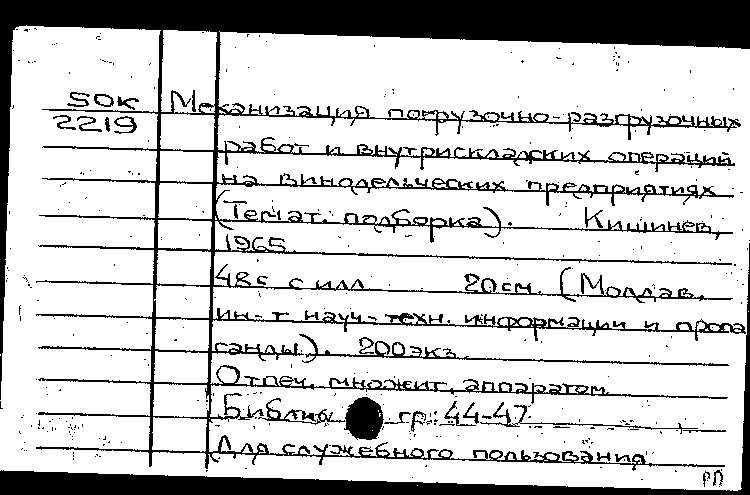 50К Механизация погрузочно-разгрузочных
2219
работ и внутрискладских операций
на винодельческих предприятиях
(Темат. подборка). Кишинев,
1965
48с с илл 20см. (Молдав.
ин-т науч-техн. информации и пропа
ганды). 200экз.
Отпеч. множит. аппаратом
44-47
Для служебного пользования.
РП